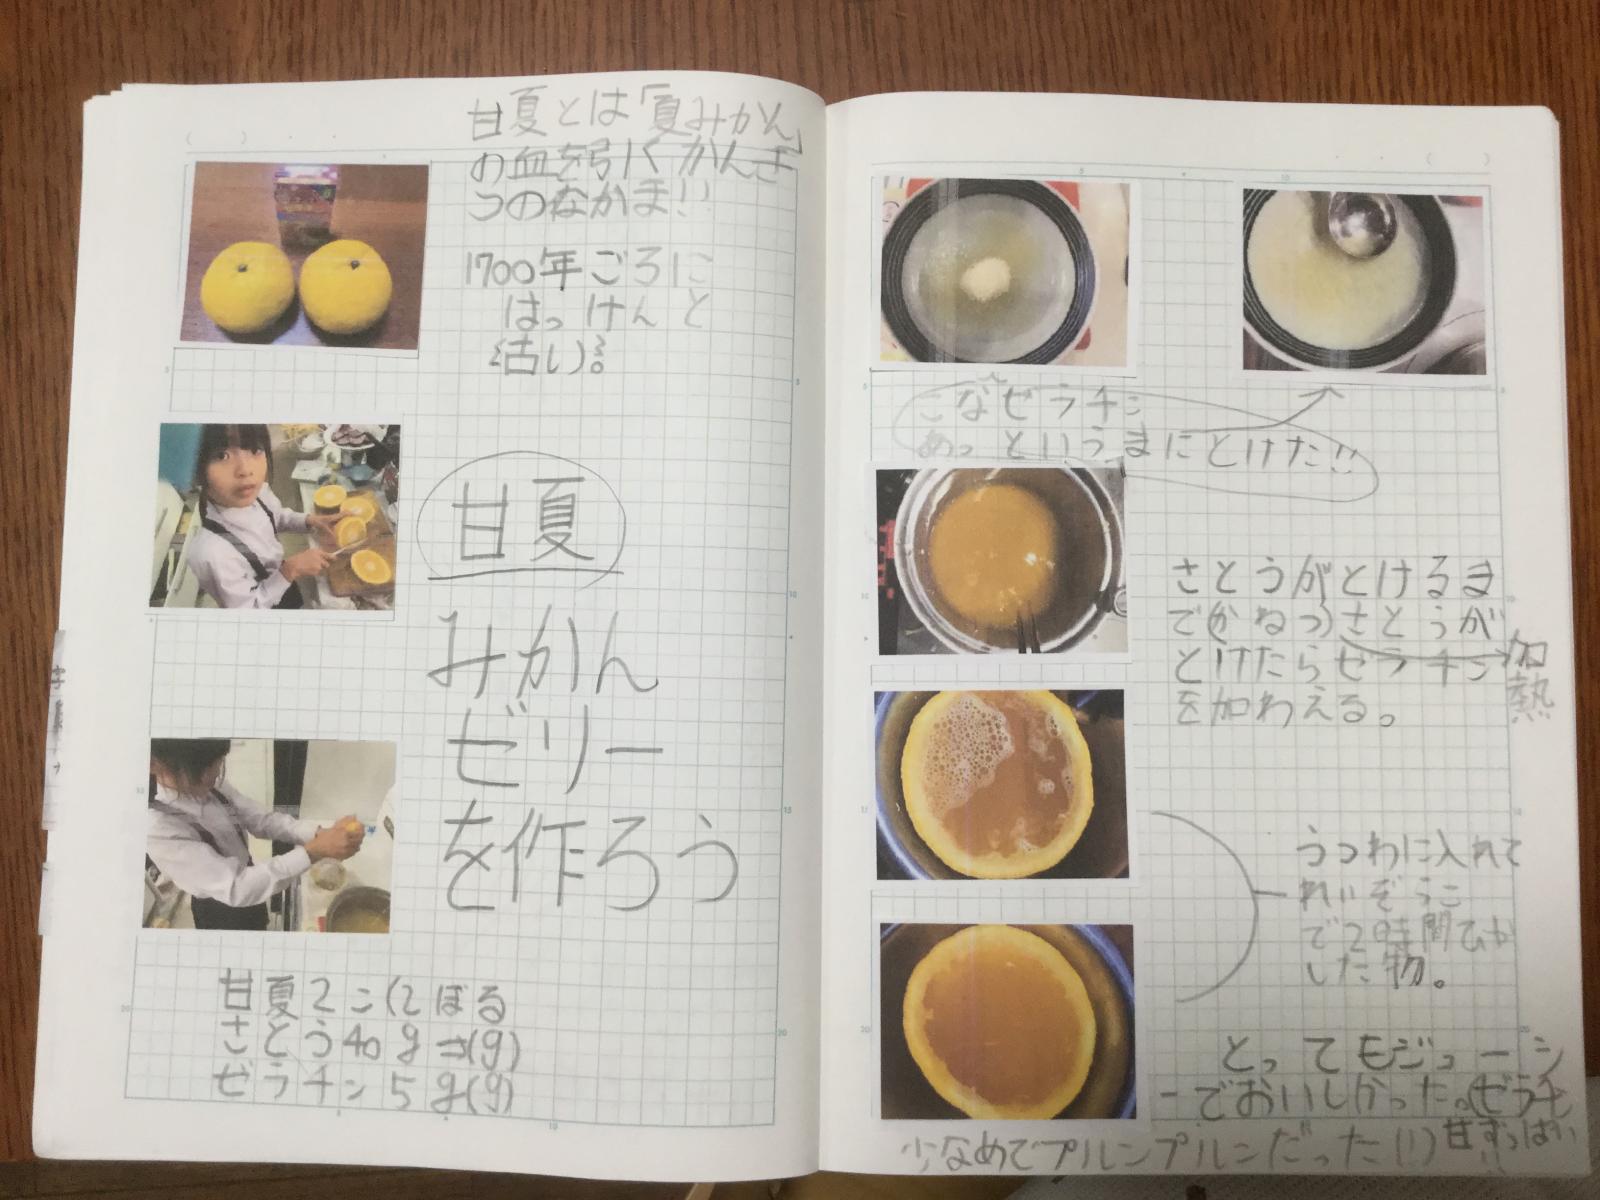 甘夏とは「夏みかん」
の血を引くかんき
つのなかま!!
1700年ごろに
はっけんと
古い。
甘夏
みかん
ゼリー
を作ろう
甘夏2こ(しぼる
さとう40g (g)
ゼラチン5g(g)
こなゼラチン
あっというまにとけた!!
さとうがとけるま
で(かねつ)さとうが
とけたらゼラチン
を加わえる。
加熱
うつわに入れて
れいぞうこ
で2時間ひか
した物。
とってもジューシ
ーでおいしかった。(ゼラチ
少なめでプルンプルンだった(!)甘ずっぱい